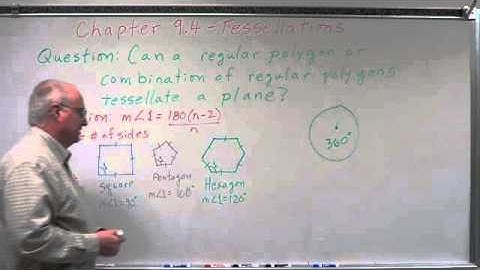 Chapter 9.4 - Tessellations
Question: Can a regular polygon or
combination of regular polygons
tessellate a plane?
ion: m∠1 = 180(n-2)/n
# of sides
360°
Square
m∠1=90°
Pentagon
m∠1=108°
Hexagon
m∠1=120°